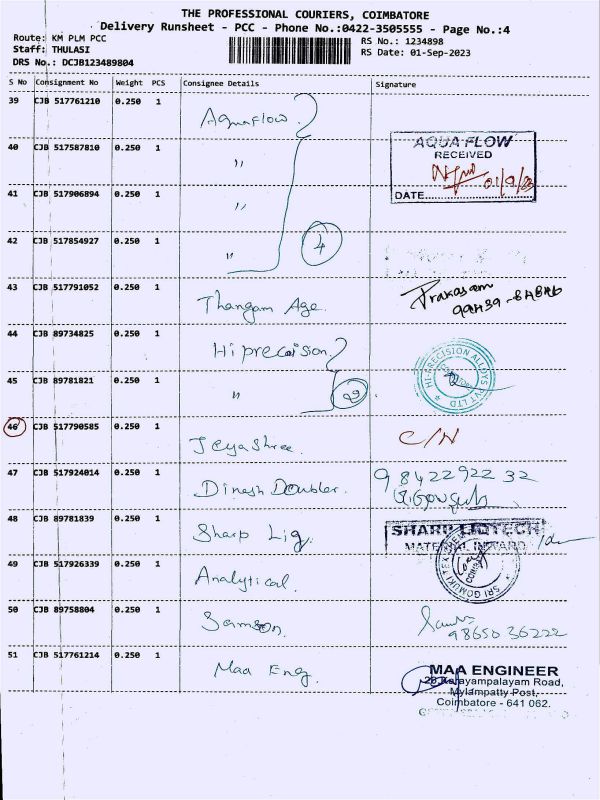 THE PROFESSIONAL COURIERS, COIMBATORE
Delivery Runsheet - PCC - Phone No.:0422-3505555 - Page No.:4
Route: KM PLM PCC
RS No.: 1234898
Staff: THULASI
RS Date: 01-Sep-2023
DRS No.: DCJB123489804
S No Consignment No Weight PCS Consignee Details Signature
39 CJB 517761210 0.250 1 Aquaflow
40 CJB 517587810 0.250 1 "
AQUA FLOW
RECEIVED
01/9/23
DATE
41 CJB 517906894 0.250 1 "
42 CJB 517854927 0.250 1 " 4
43 CJB 517791052 0.250 1 Thangam Age. Prakasam
44 CJB 89734825 0.250 1 Hi precision
HI-PRECISION ALLOYS PVT LTD
45 CJB 89781821 0.250 1 " 2
46 CJB 517790585 0.250 1 Jeyashree. C/N
47 CJB 517924014 0.250 1 Dinesh Doubler. 98422922 32
48 CJB 89781839 0.250 1 Sharp Liq.
SHARP LIQTECH
MATERIAL INWARD
49 CJB 517926339 0.250 1 Analytical
SRI GOMUKI TEX
50 CJB 89758804 0.250 1 Samson.
98650 36222
51 CJB 517761214 0.250 1 Maa Eng.
MAA ENGINEER
Kalayampalayam Road,
Mylampatty Post,
Coimbatore - 641 062.